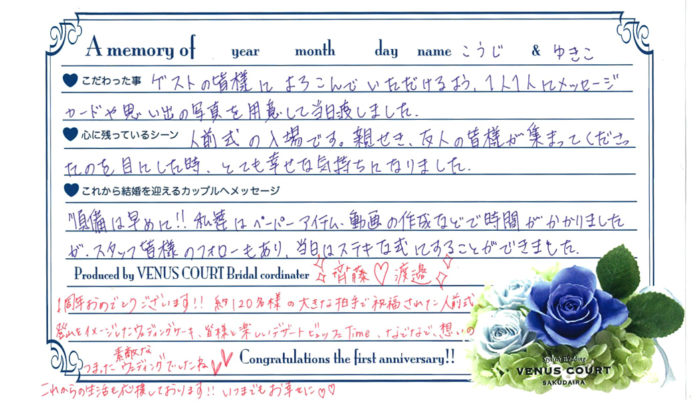 A memory of year month day name こうじ & ゆきこ
こだわった事 ゲストの皆様によろこんでいただけるよう、1人1人にメッセージ
カードや思い出の写真を用意して当日渡しました。
心に残っているシーン 人前式の入場です。親せき、友人の皆様が集まってくださっ
たのを目にした時、とても幸せな気持ちになりました。
これから結婚を迎えるカップルへメッセージ
準備は早めに!! 私達はペーパーアイテム、動画の作成などで時間がかかりました
が、スタッフ皆様のフォローもあり、当日はステキな式にすることができました。
Produced by VENUS COURT Bridal cordinater 齊藤♡渡邉
1周年おめでとうございます!! 約120名様の大きな拍手で祝福された人前式
登山をイメージしたウェディングケーキ、皆様と楽しいデザートビュッフェTime、などなど、想い
素敵な
つまったウェディングでしたね
Congratulations the first anniversary!!
これからの生活も応援しております!! いつまでもお幸せに♡♡
VENUS COURT
SAKUDAIRA